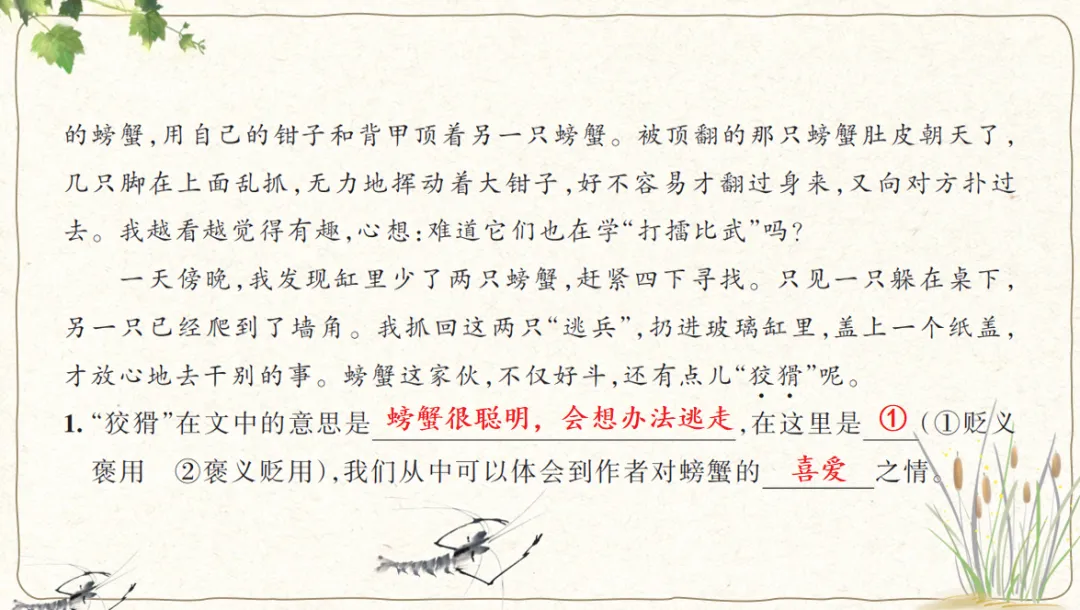 的螃蟹,用自己的钳子和背甲顶着另一只螃蟹。被顶翻的那只螃蟹肚皮朝天了,
几只脚在上面乱抓,无力地挥动着大钳子,好不容易才翻过身来,又向对方扑过
去。我越看越觉得有趣,心想:难道它们也在学“打擂比武”吗?
一天傍晚,我发现缸里少了两只螃蟹,赶紧四下寻找。只见一只躲在桌下,
另一只已经爬到了墙角。我抓回这两只“逃兵”,扔进玻璃缸里,盖上一个纸盖,
才放心地去干别的事。螃蟹这家伙,不仅好斗,还有点儿“狡猾”呢。
1. “狡猾”在文中的意思是螃蟹很聪明，会想办法逃走,在这里是①(①贬义
褒用 ②褒义贬用),我们从中可以体会到作者对螃蟹的喜爱之情。